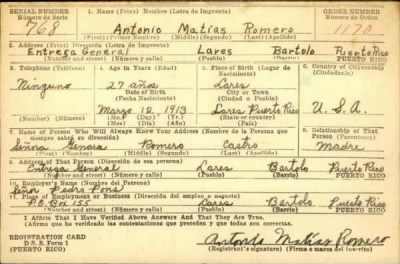 SERIAL NUMBER 1. Name (Print) Nombre (Letra de Imprenta) ORDER NUMBER
Número de Serie Número de Orden
768 Antonio Matías Romero 1170
(First) (Primer Nombre) (Middle) (Segundo) (Last) (Apellido)
2. Address (Print) Dirección (Letra de Imprenta)
Entrega General Lares Bartolo Puerto Rico
(Number and street) (Número y calle) (Pueblo) (Barrio) PUERTO RICO
3. Telephone (Teléfono) 4. Age in Years (Edad) 5. Place of Birth (Lugar de Nacimiento) 6. Country of Citizenship (Ciudadanía)
Ninguno 27 años Lares
Date of Birth (Fecha Nacimiento) City or Town (Ciudad o Pueblo)
Marzo 12 1913 Lares Puerto Rico U.S.A.
(Number) (Número) (Mo.) (Mes) (Day) (Día) (Yr.) (Año) State or country (País)
7. Name of Person Who Will Always Know Your Address (Nombre de la Persona que siempre sabrá su dirección) 8. Relationship of That Person (Parentesco)
Señora Romero Castro Madre
(First) (Nombre) (Middle) (Segundo) (Last) (Apellido)
9. Address of That Person (Dirección de esa persona)
Entrega General Lares Bartolo Puerto Rico
(Number and street) (Número y calle) (Pueblo) (Barrio) PUERTO RICO
10. Employer's Name (Nombre del Patrono)
Señor Pedro Pons
11. Place of Employment or Business (Dirección del empleo o negocio)
P.O. Box 155 Lares Bartolo Puerto Rico
(Number and street) (Número y calle) (Pueblo) (Barrio) PUERTO RICO
I Affirm That I Have Verified Above Answers And That They Are True.
(Afirmo que he verificado las contestaciones que preceden y que todas son correctas.)
REGISTRATION CARD
D.S.S. Form 1
(PUERTO RICO)
Antonio Matías Romero
(Registrant's signature) (Firma o marca del inscrito)